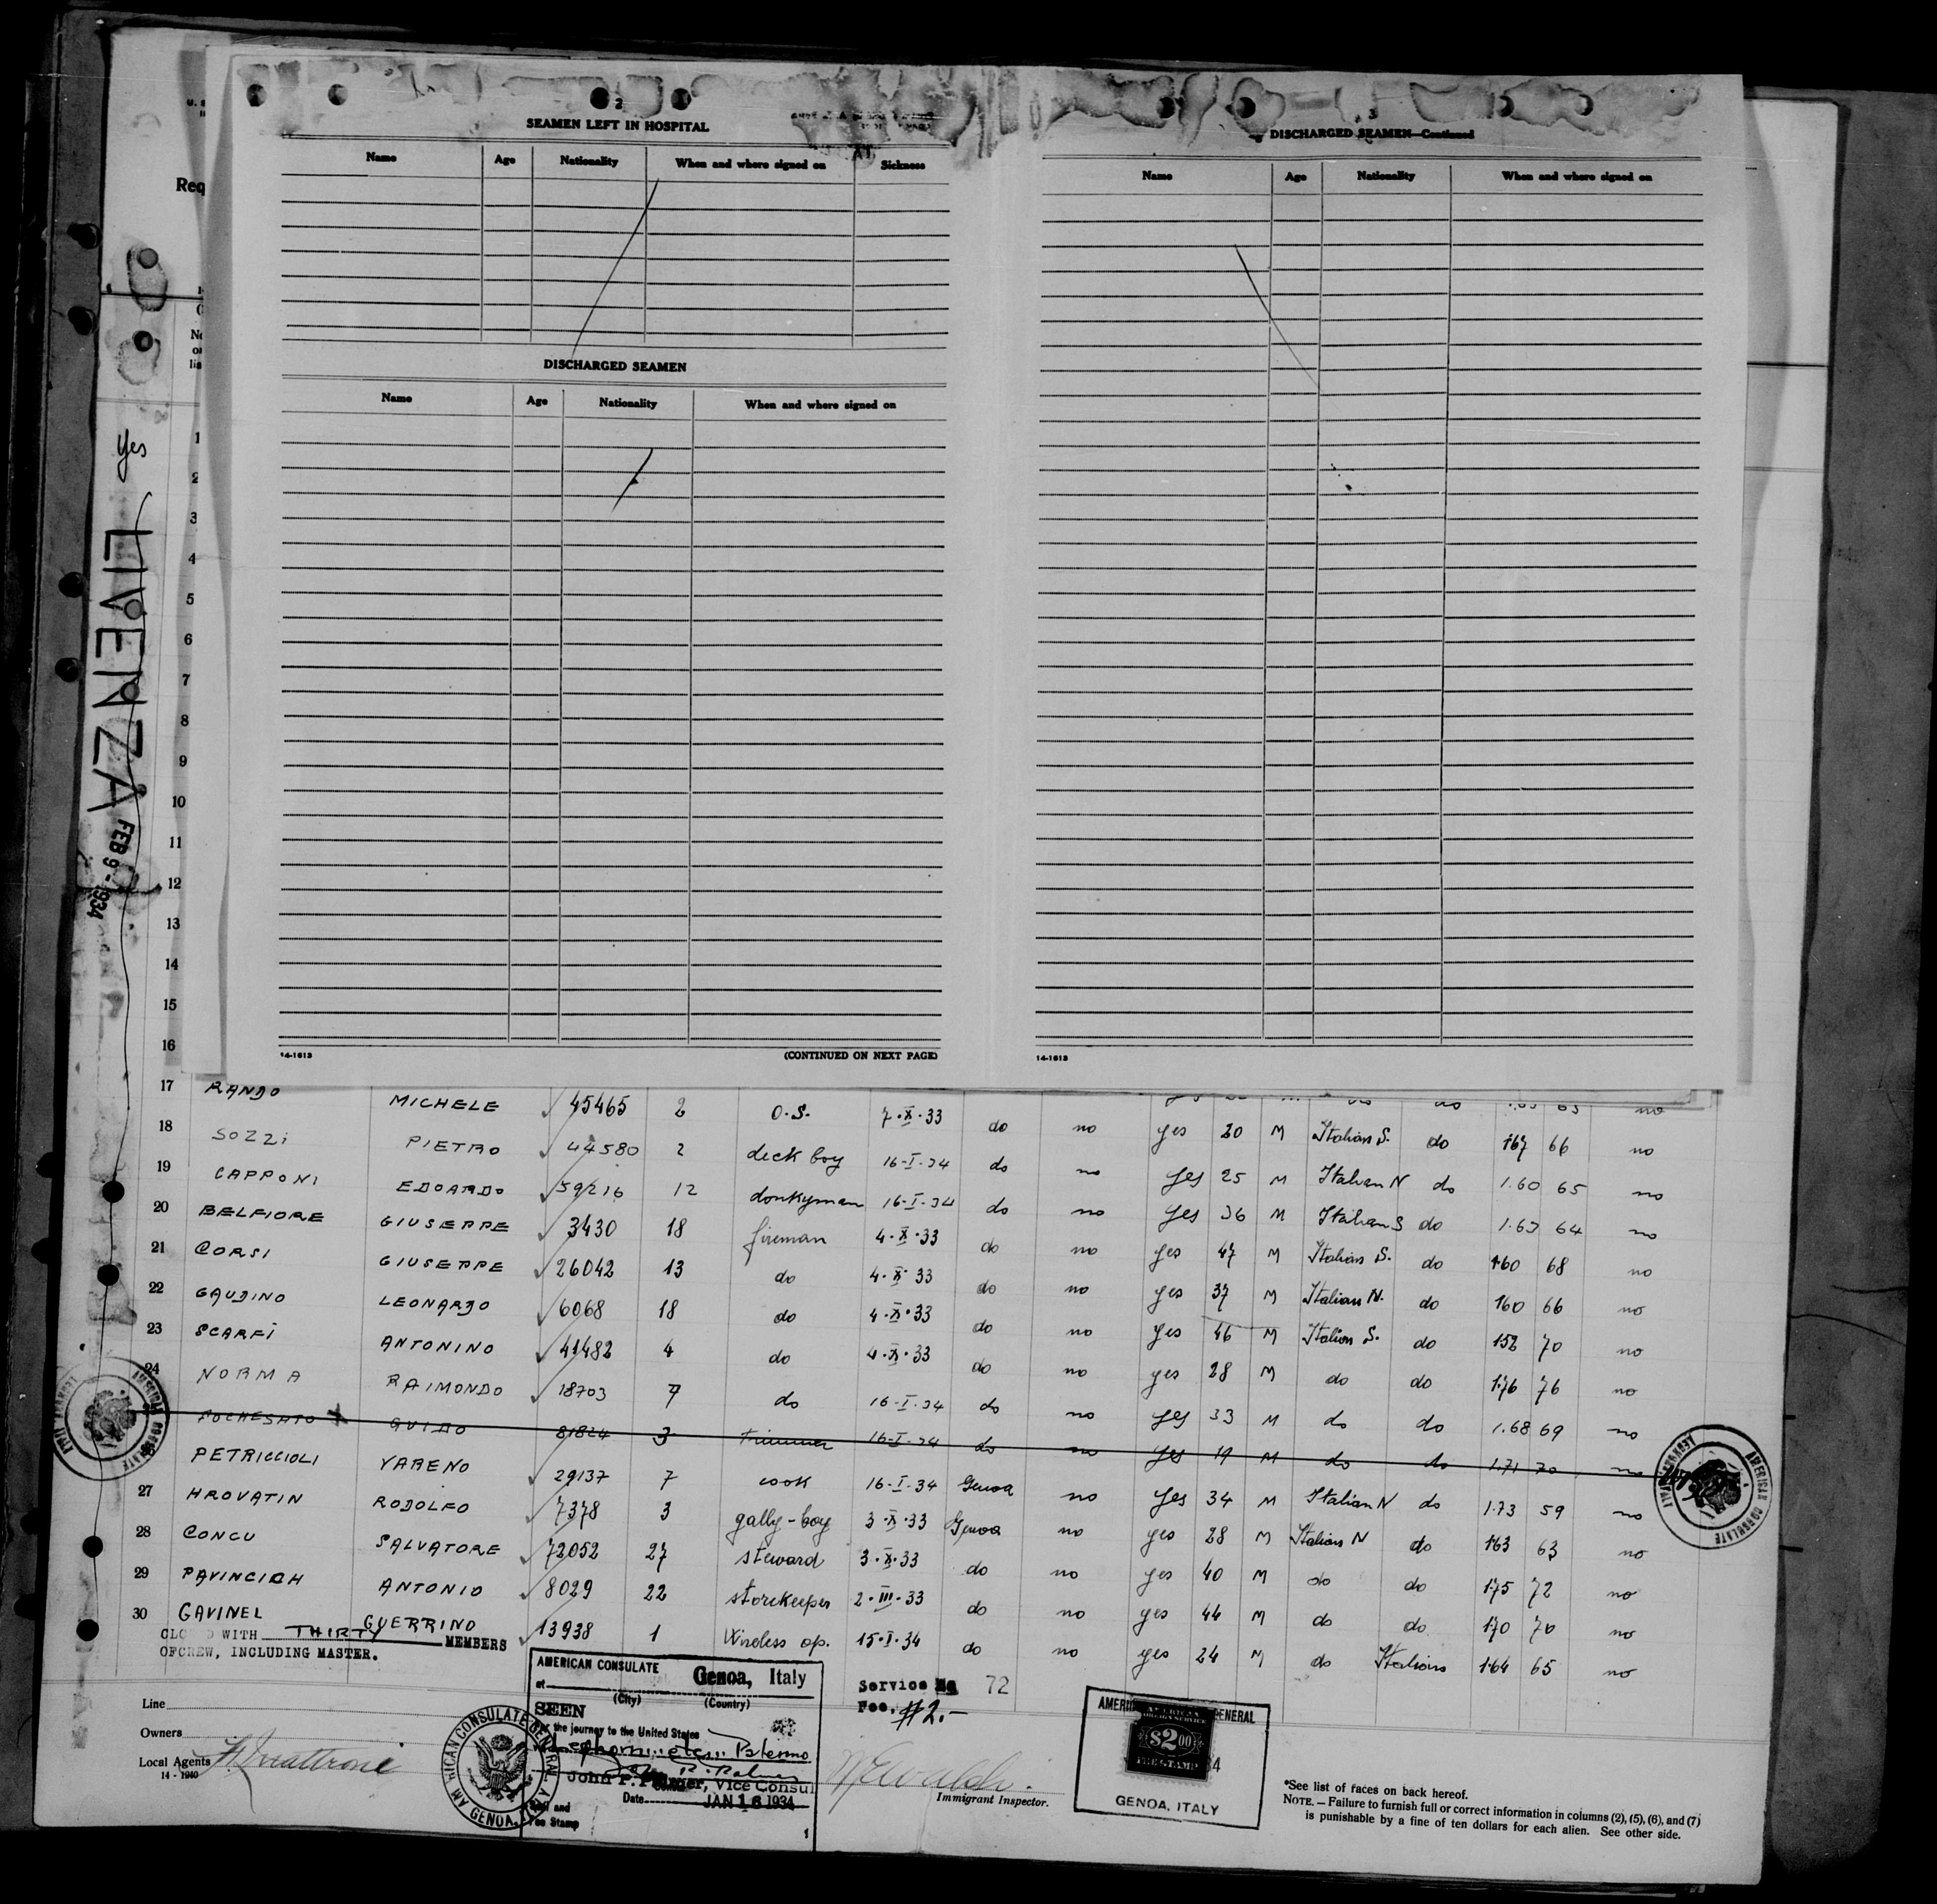 2
SEAMEN LEFT IN HOSPITAL
Name Age Nationality When and where signed on Sickness
DISCHARGED SEAMEN
Name Age Nationality When and where signed on
14-1613 (CONTINUED ON NEXT PAGE)
3
DISCHARGED SEAMEN—Continued
Name Age Nationality When and where signed on
14-1613
Req
yes
LIVENZA
FEB 9 - 1934
1
2
3
4
5
6
7
8
9
10
11
12
13
14
15
16
17 RANDO MICHELE 45465 2 O.S. 7·X·33 do no yes 20 M Italian S. do 167 66 no
18 SOZZI PIETRO 44580 2 deck boy 16-I-34 do no yes 25 M Italian N do 1.60 65 no
19 CAPPONI EDOARDO 59216 12 donkyman 16-I-34 do no yes 36 M Italian S do 1.63 64 no
20 BELFIORE GIUSEPPE 3430 18 fireman 4·X·33 do no yes 47 M Italian S. do 160 68 no
21 CORSI GIUSEPPE 26042 13 do 4·X·33 do no yes 37 M Italian N. do 160 66 no
22 GAUDINO LEONARDO 6068 18 do 4·X·33 do no yes 46 M Italian S. do 152 70 no
23 SCARFÌ ANTONINO 41482 4 do 4·X·33 do no yes 28 M do do 176 76 no
24 NORMA RAIMONDO 18703 7 do 16-I-34 do no yes 33 M do do 1.68 69 no
FOCHESATO GUIDO 81824 3 trimmer 16-I-34 do no yes 19 M do do 1.71 70 no
PETRICCIOLI VARENO 29137 7 cook 16-I-34 Genoa no yes 34 M Italian N do 1.73 59 no
27 HROVATIN RODOLFO 7378 3 gally-boy 3·X·33 Genoa no yes 28 M Italian N do 163 63 no
28 CONCU SALVATORE 72052 27 steward 3·X·33 do no yes 40 M do do 175 72 no
29 PAVINCICH ANTONIO 8029 22 storekeeper 2·III·33 do no yes 44 M do do 170 70 no
30 GAVINEL GUERRINO 13938 1 Wireless op. 15·I·34 do no yes 24 M do Italians 164 65 no
WITH THIRTY MEMBERS
OF CREW, INCLUDING MASTER.
AMERICAN CONSULATE Genoa, Italy
at (City) (Country)
SEEN
for the journey to the United States
Palermo
John P. Palmer, Vice Consul
Date JAN 16 1934
Fee Stamp
1
AMERICAN CONSULATE GENERAL
GENOA,
Service No 72
Fee. #2.-
Line
Owners
Local Agents
14-1940
Immigrant Inspector.
GENERAL
$2.00
FEE STAMP
GENOA, ITALY
AMERICAN CONSULATE
*See list of races on back hereof.
NOTE.—Failure to furnish full or correct information in columns (2), (5), (6), and (7)
is punishable by a fine of ten dollars for each alien. See other side.